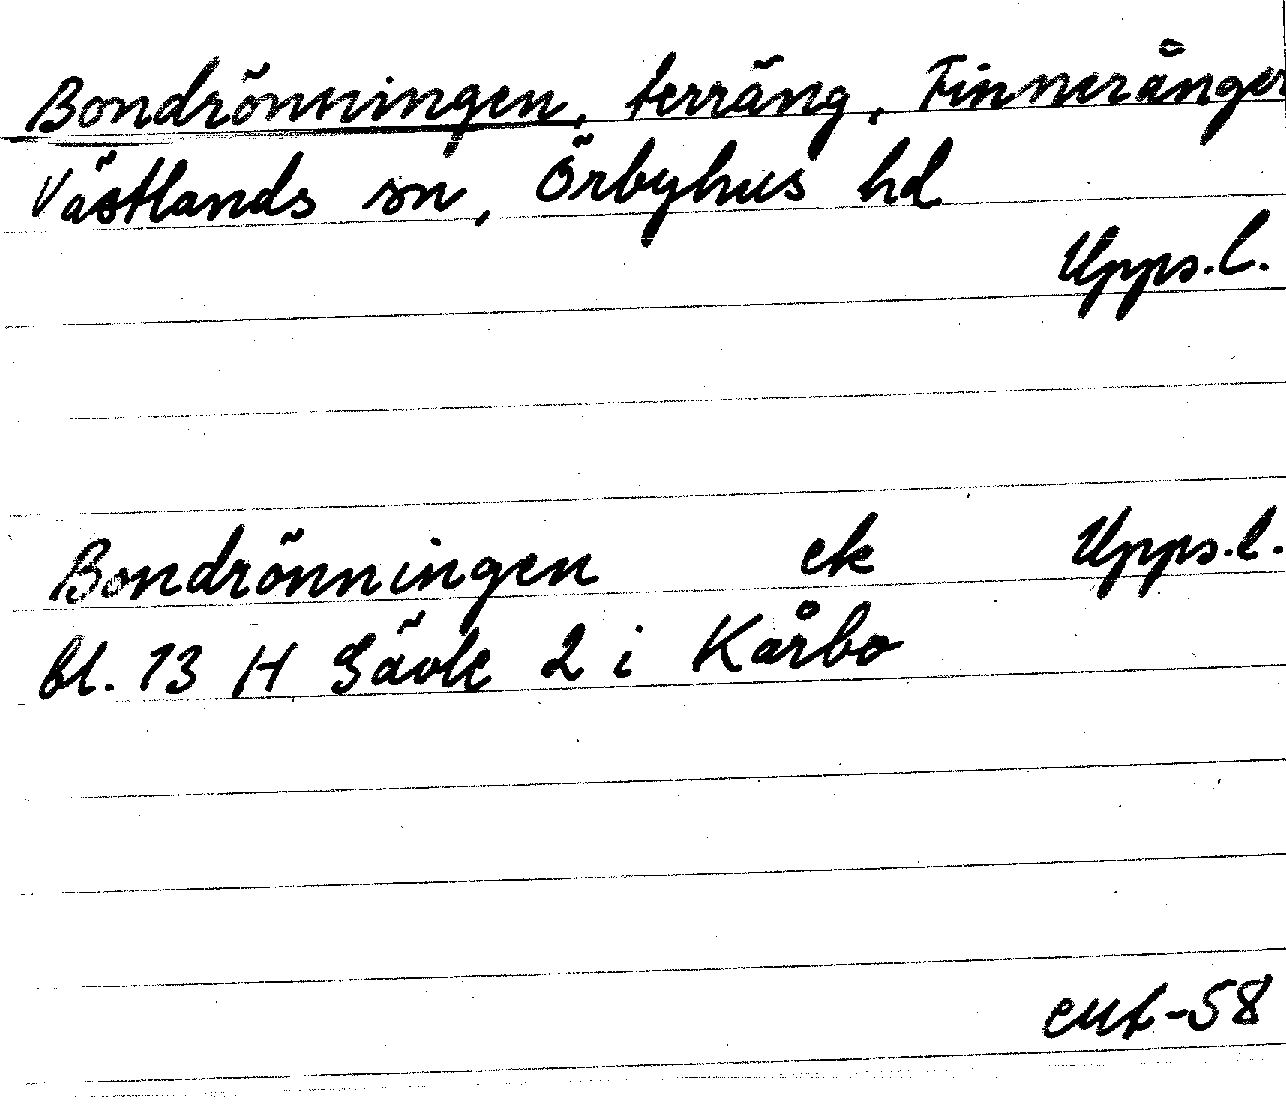 Bondrönningen, terräng, Finnerånger
Västlands sn, Örbyhus hd
Upps.l.
Bondrönningen ek Upps.l.
bl. 13 H Gävle 2 i Kårbo
-58